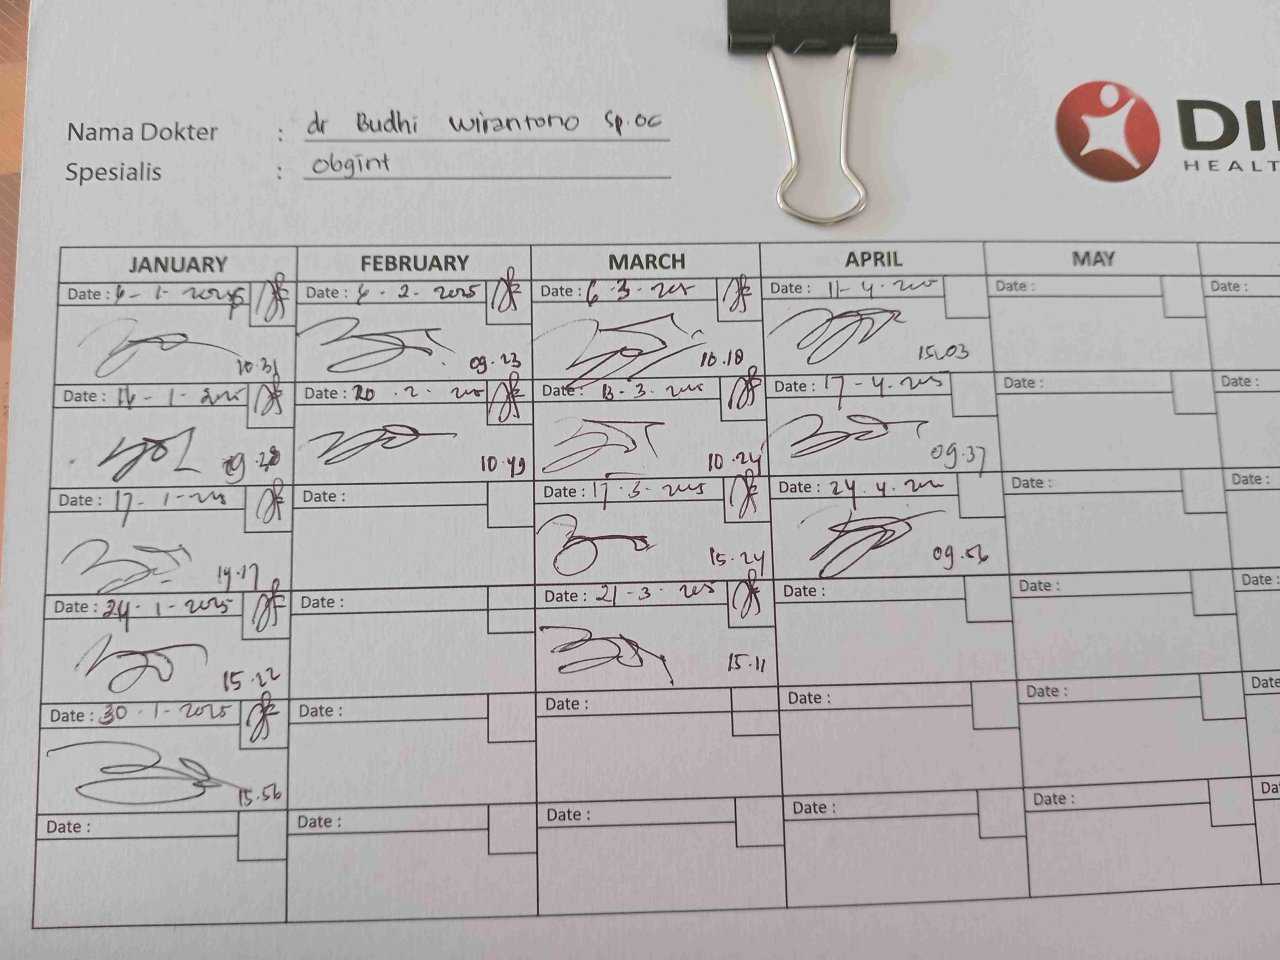 Nama Dokter : dr Budhi Wirantono Sp.OG
Spesialis : Obgint
DI
HEALT
JANUARY FEBRUARY MARCH APRIL MAY
Date : 6-1-2025 Date : 6-2-2025 Date : 6-3-2025 Date : 11-4-2025 Date : Date :
10.31 09.23 10.18 15.03
Date : 16-1-2025 Date : 20-2-2025 Date : 13-3-2025 Date : 17-4-2025 Date : Date :
09.28 10.49 10.24 09.37
Date : 17-1-2025 Date : Date : 17-3-2025 Date : 24.4.2025 Date : Date :
14.17 15.24 09.56
Date : 24-1-2025 Date : Date : 21-3-2025 Date : Date : Date :
15.22 15.11
Date : 30-1-2025 Date : Date : Date : Date : Date
15.56
Date : Date : Date : Date : Date : Da